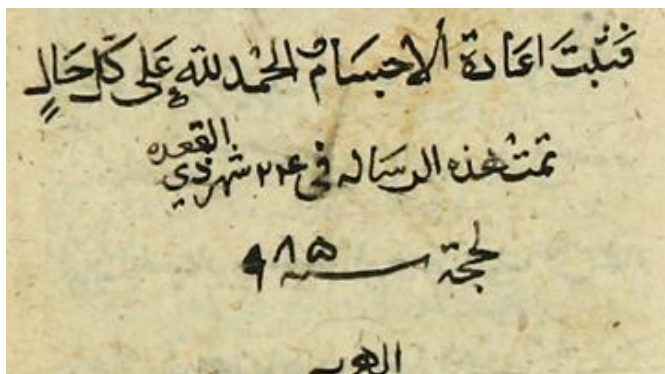 فثبت اعادة الاجسام والحمد لله على كل حال
تمت هذه الرساله في ٢٤ شهر ذي القعده
لحجة سنه ٩٨٥